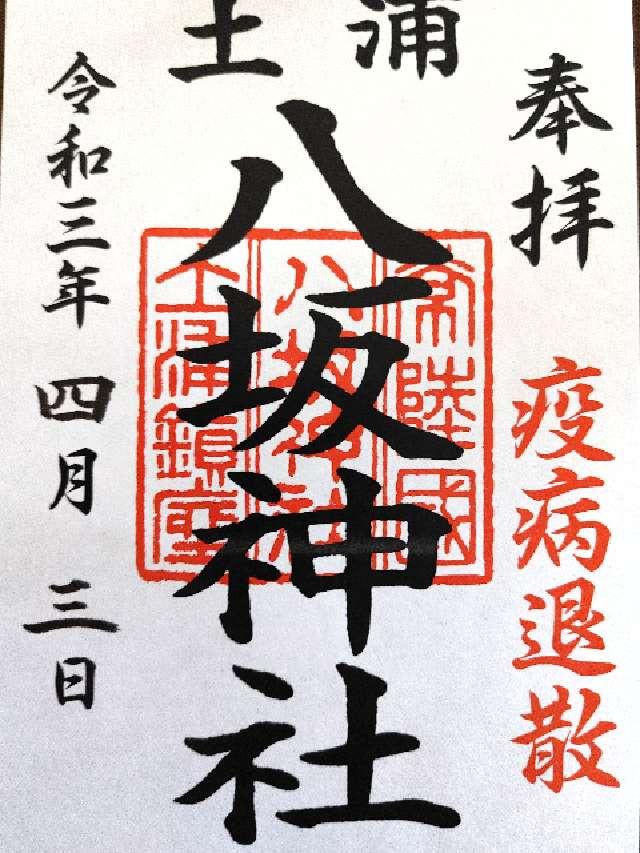 奉拝
疫病退散
土浦
八坂神社
常陸國
八坂神社
土浦鎮座
令和三年 四月 三日